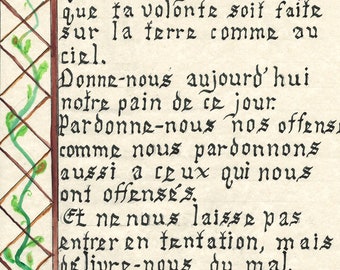 que ta volonté soit faite
sur la terre comme au
ciel.
Donne-nous aujourd'hui
notre pain de ce jour.
Pardonne-nous nos offens
comme nous pardonnons
aussi a ceux qui nous
ont offensés.
Et ne nous laisse pas
entrer en tentation, mais
délivre-nous du mal.